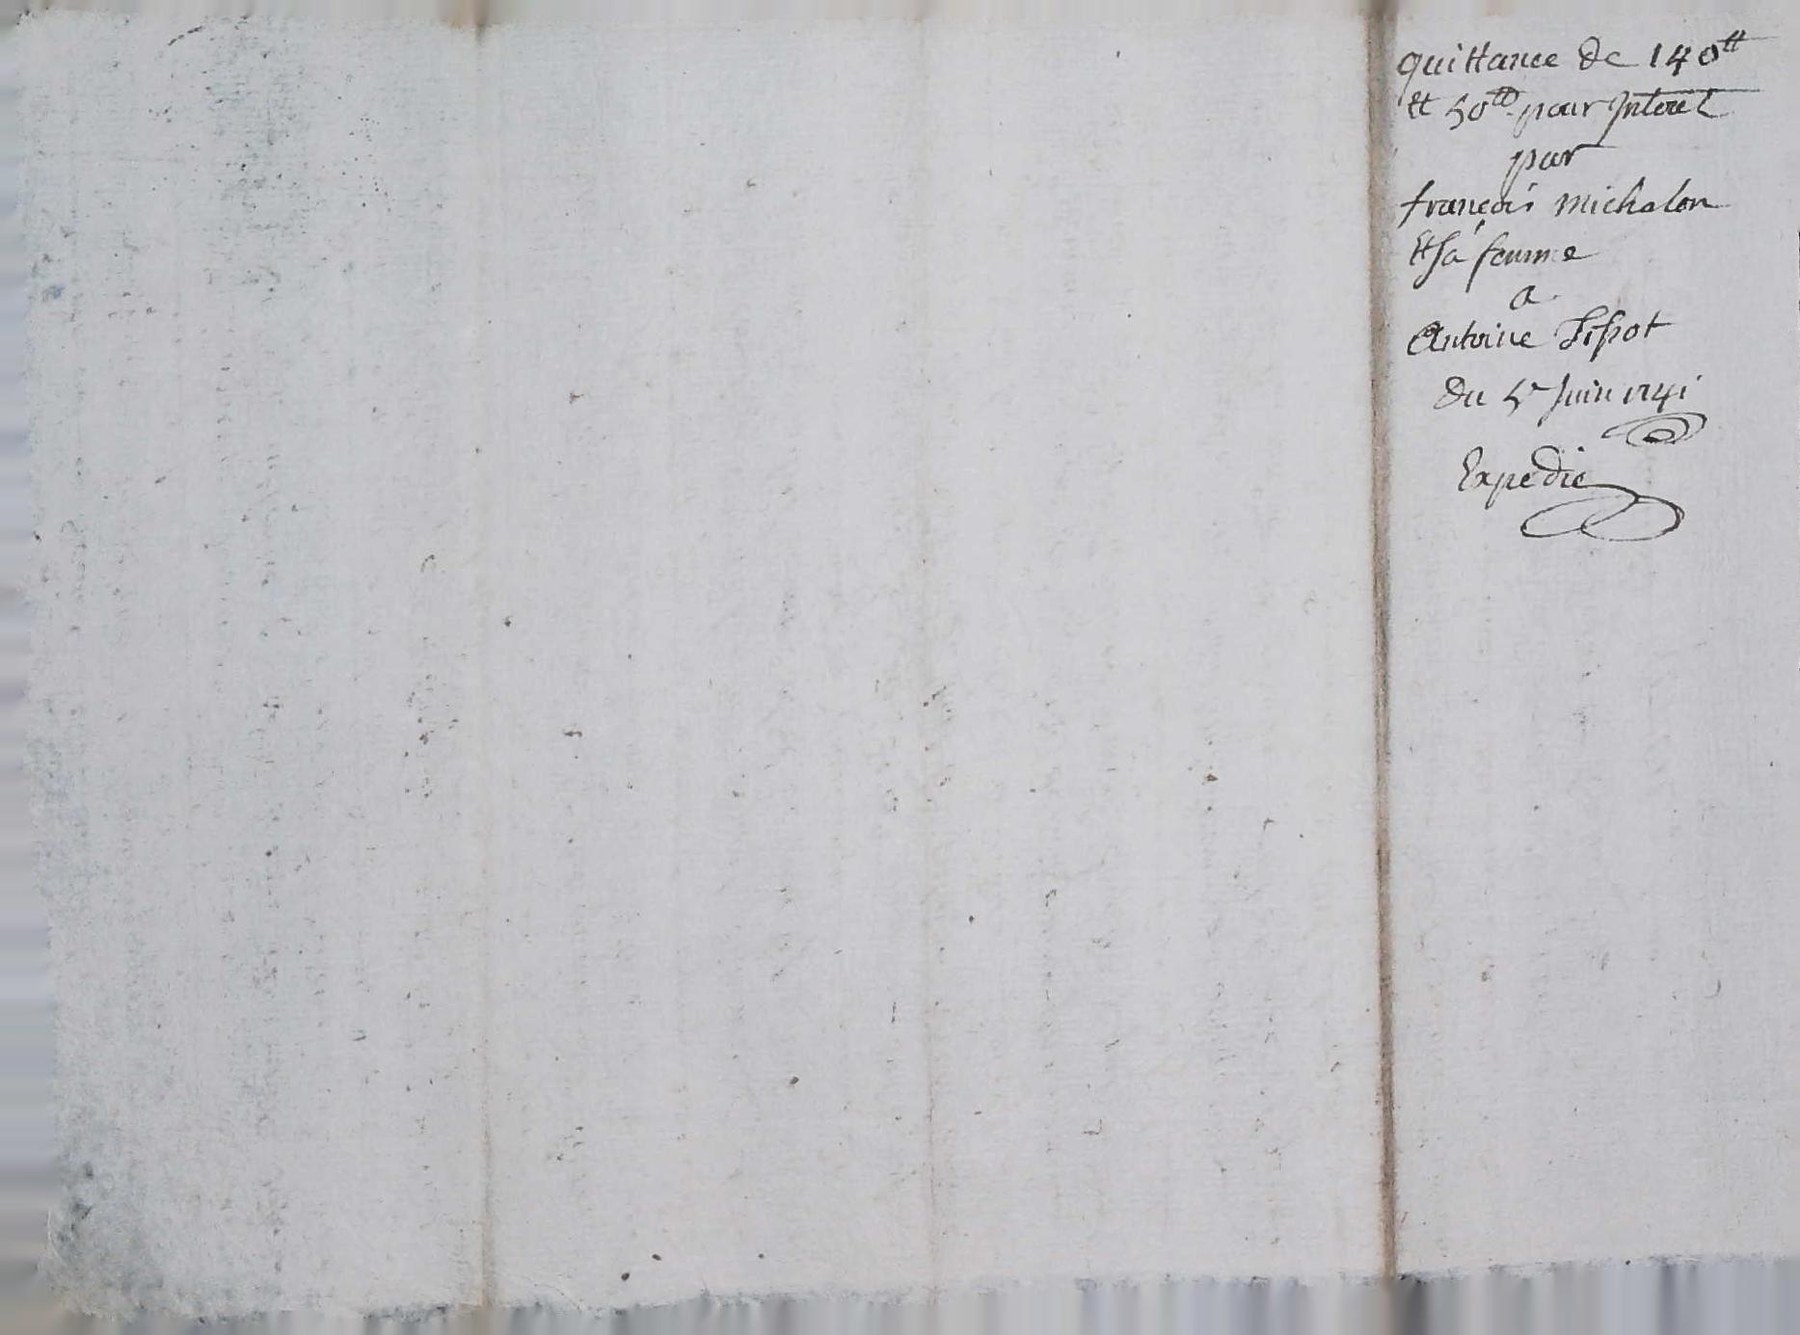 quittance de 140tt
Et 50tt pour Interet
par
françois michalon
Et sa femme
a
Antoine
du 5e Juin 1741
Expedié